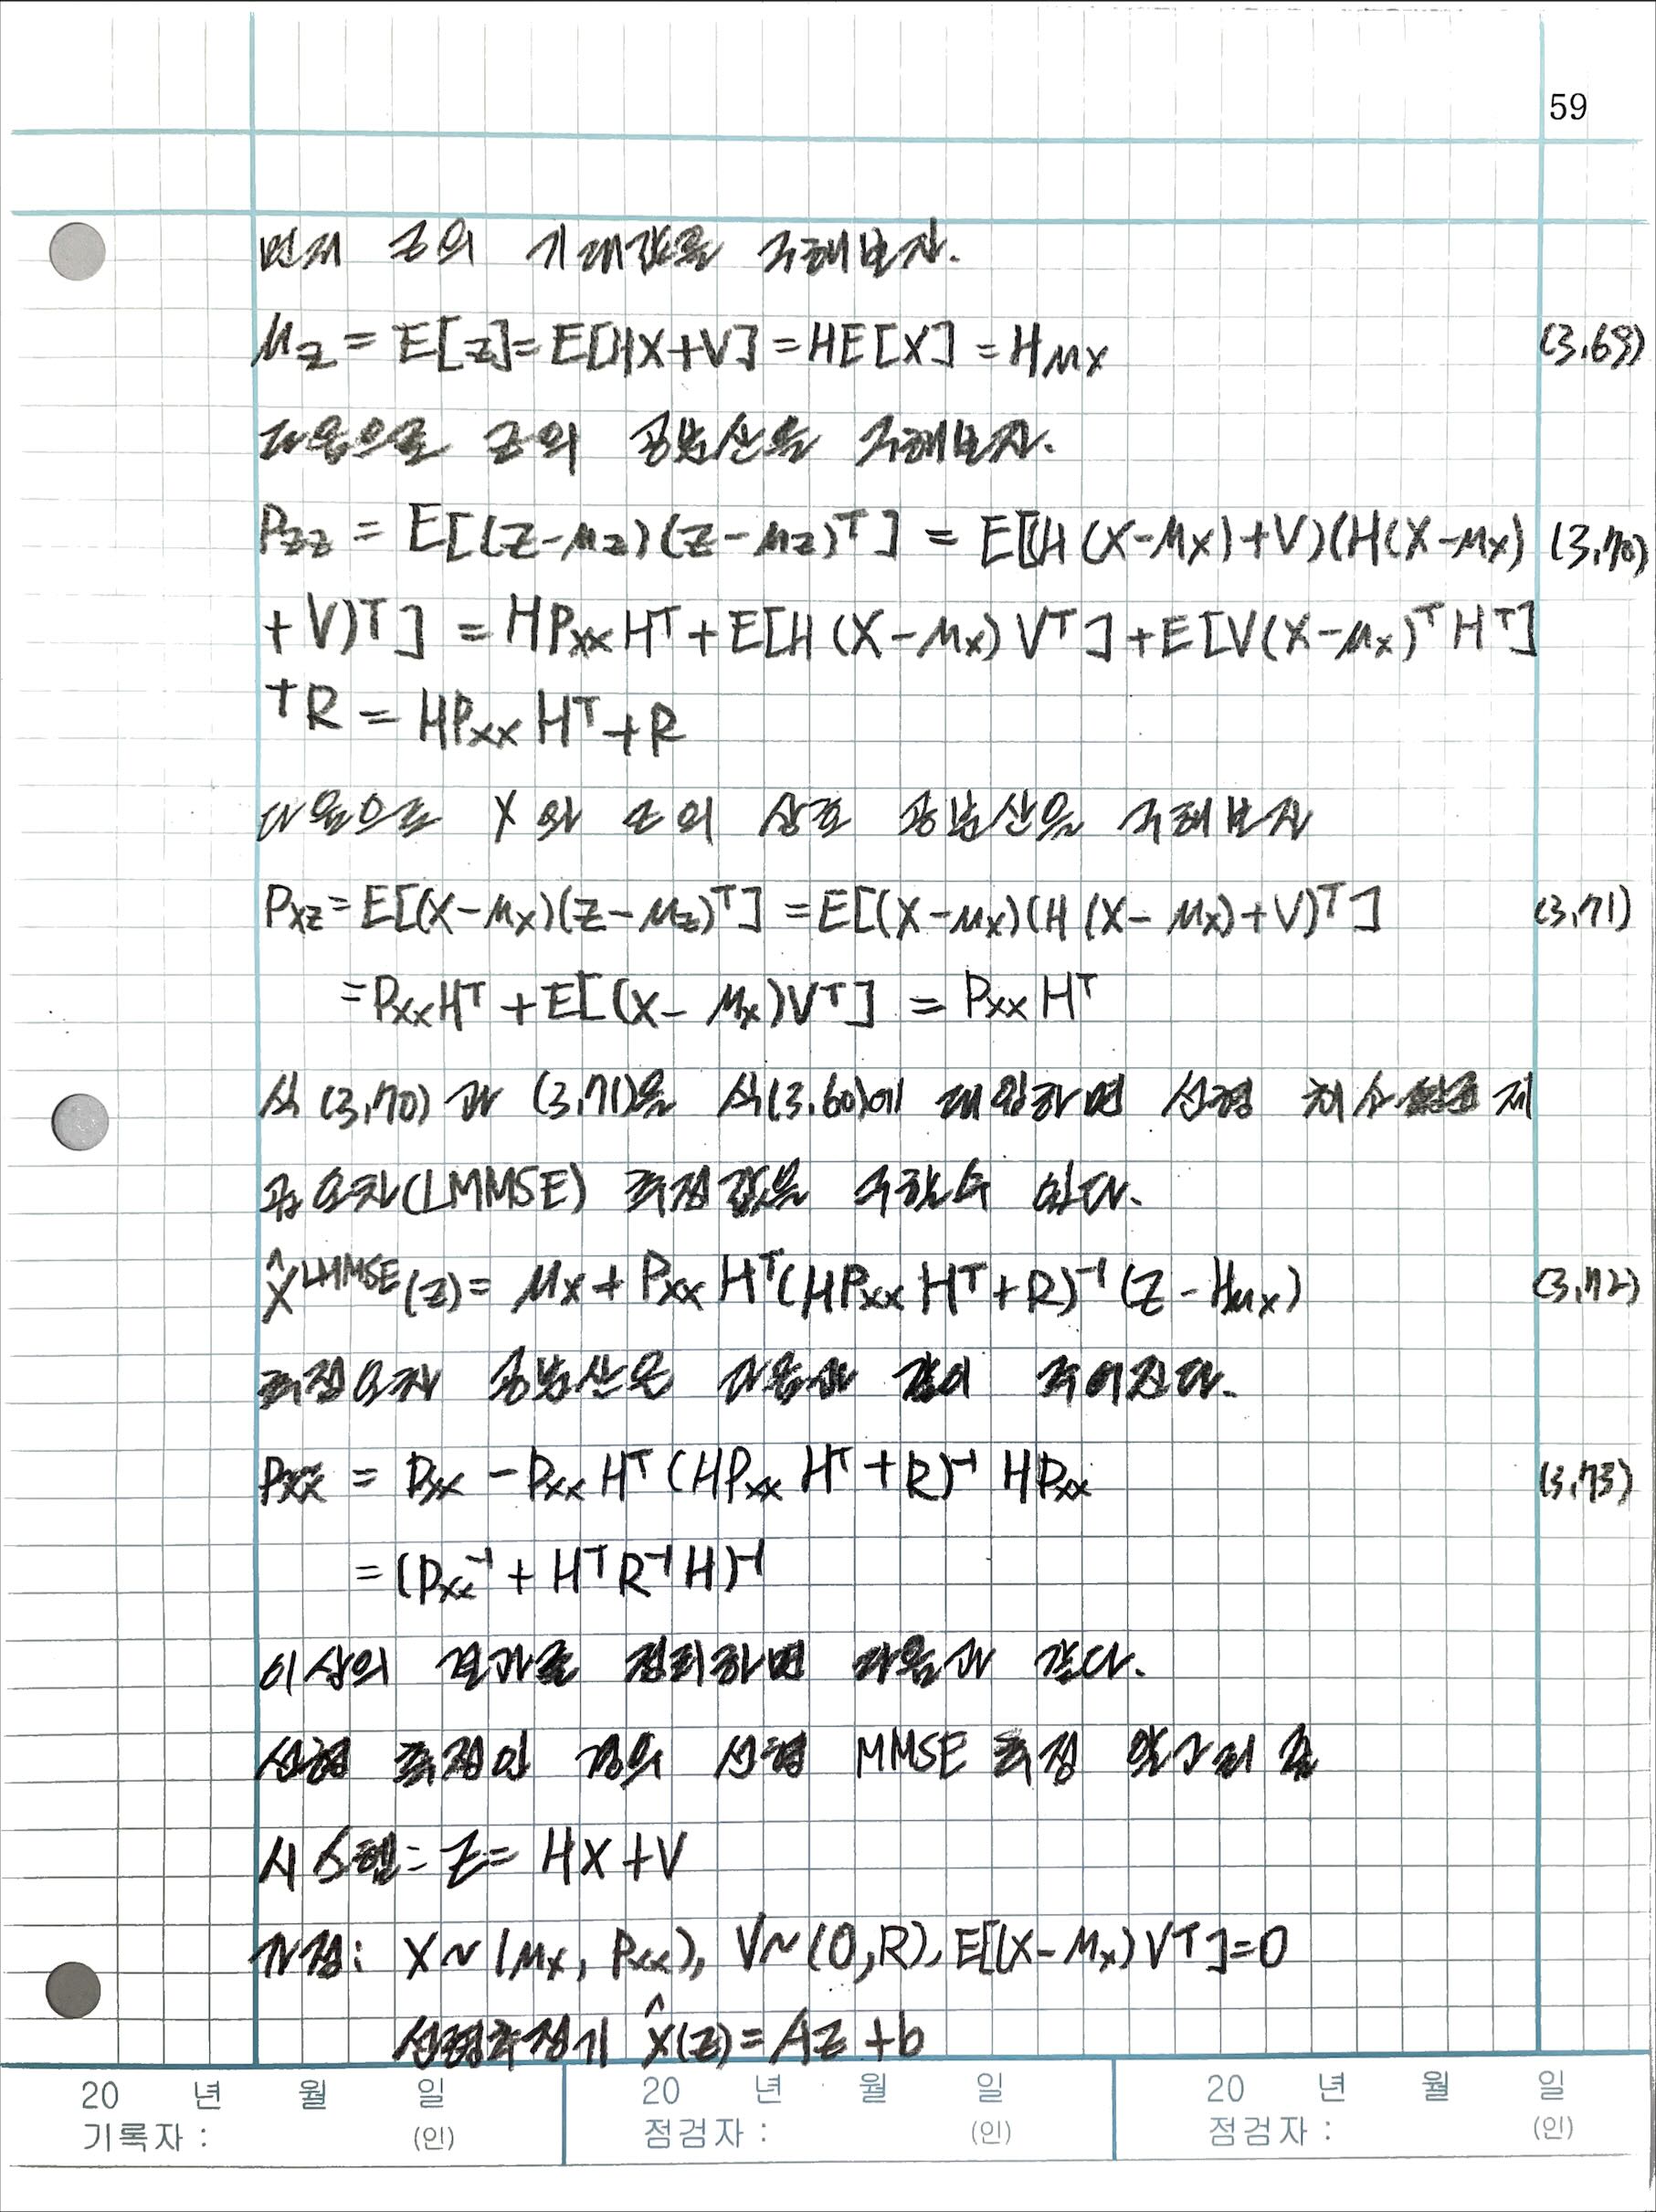 59
먼저 z의 기대값을 구해보자.
μz = E[z] = E[HX+V] = HE[X] = Hμx (3.69)
다음으로 z의 공분산을 구해보자.
Pzz = E[(Z-μz)(Z-μz)ᵀ] = E[(H(X-μx)+V)(H(X-μx) (3.70)
+V)ᵀ] = HPxxHᵀ+E[H(X-μx)Vᵀ]+E[V(X-μx)ᵀHᵀ]
+R = HPxxHᵀ+R
다음으로 X와 z의 상호 공분산을 구해보자
Pxz = E[(X-μx)(Z-μz)ᵀ] = E[(X-μx)(H(X-μx)+V)ᵀ] (3.71)
= PxxHᵀ+E[(X-μx)Vᵀ] = PxxHᵀ
식(3.70)과 (3.71)을 식(3.60)에 대입하면 선형 최소 평균 제
곱오차(LMMSE) 추정값을 구할수 있다.
X̂ᴸᴹᴹˢᴱ(z) = μx + PxxHᵀ(HPxxHᵀ+R)⁻¹(Z-Hμx) (3.72)
추정오차 공분산은 다음과 같이 주어진다.
Px̃x̃ = Pxx - PxxHᵀ(HPxxHᵀ+R)⁻¹HPxx (3.73)
= (Pxx⁻¹+HᵀR⁻¹H)⁻¹
이상의 결과를 정리하면 다음과 같다.
선형 측정인 경우 선형 MMSE 추정 알고리즘
시스템: Z = HX+V
가정: X~(μx, Pxx), V~(0,R), E[(X-μx)Vᵀ]=0
선형추정기 x̂(z) = Az+b
20 년 월 일 20 년 월 일 20 년 월 일
기록자 : (인) 점검자 : (인) 점검자 : (인)